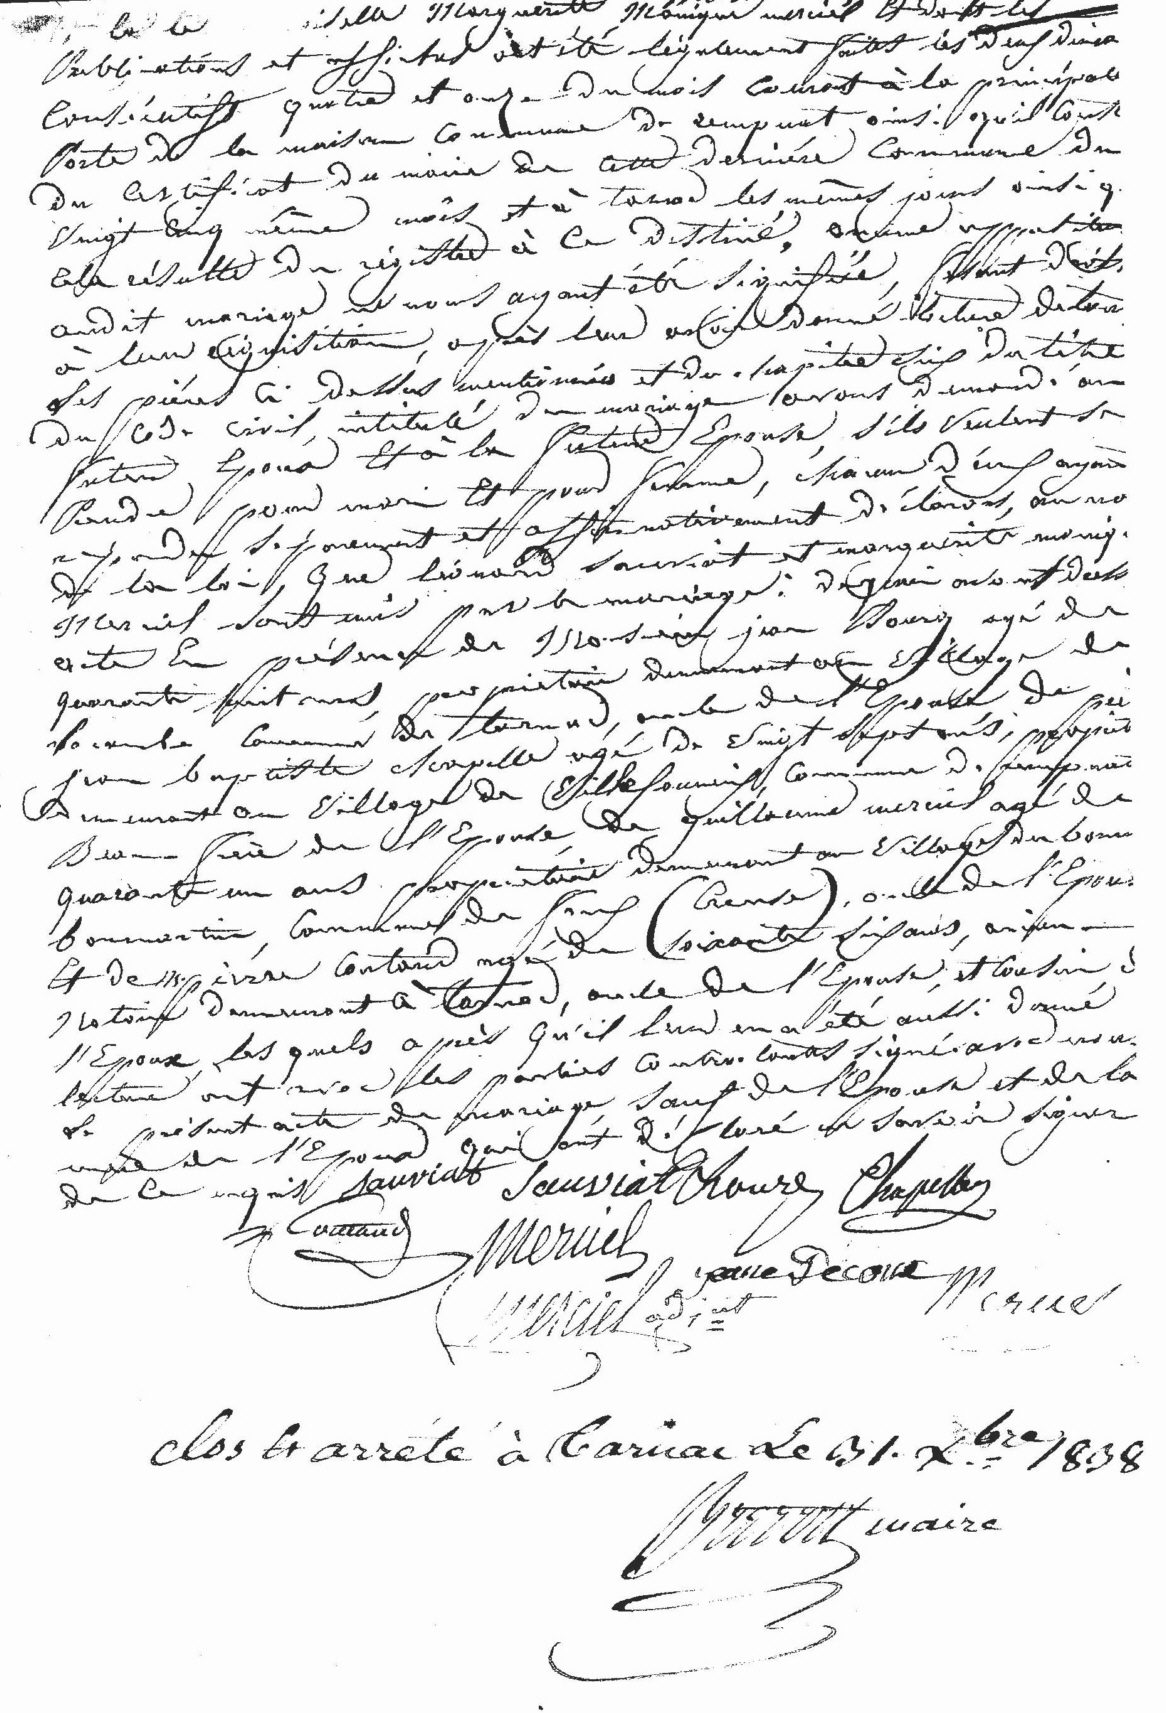 la le iselle Marguerite Monique merciel Et dont les
Publications et affiches ont été légalement faites les deux diman
Consécutifs quatre et onze du mois Courant à la principale
Porte de la maison Commune de rempnat ainsi qu'il Conste
du Certificat du maire de Cette dernière Commune du
Vingt Cinq même mois et à tarnac les mêmes jours ainsi q.
cela résulte du régistre à Ce destiné, aucune opposition
audit mariage ne nous ayant été signifiée, fesant droit
à leur réquisition, après leur avoir donné lecture de tou
les pièces Ci dessus mentionnées et du chapitre six du titre
du Code Civil, intitulé du mariage avons demandé au
futur Epoux Et à la future Epouse, s'ils veulent se
Prendre pour mari Et pour femme, chacun d'eux ayant
répondu séparement et affirmativement déclarons, au no
de la loi, que léonard sauviat et marguerite moniq.
Merciel sont unis par le mariage; de quoi avons dressé
acte En présence de Monsieur jean Roure agé de
quarante huit ans, propriétaire demeurant au Village de
commune de tarnac, oncle de l'Epouse, de pie
jean baptiste chapelle agé de Vingt Sept ans, propriét
Demeurant au Village de Commune de rempnat
Beau-frère de l'Epouse, de Guillaume merciel agé de
quarante un ans propriétaire demeurant au Village du
Commune de (Creuse), oncle de l'Epouse
Et de m. pierre Contaud agé de Soixante six ans, ancien
Notaire demeurant à Tarnac, oncle de l'Epouse, et Cousin d
l'Epoux, les quels après qu'il leur en a été aussi donné
lecture ont avec les parties Contractantes signé avec nous
le présent acte de mariage, sauf de l'Epouse et de la
mère de l'Epoux qui ont déclaré ne savoir signer
de Ce requis Sauviat Sauviat Roure Chapelle
Contaud Merciel
jeane Decoux
merciel adj.nt Merciel
Clos Et arrété à Tarnac Le 31. Xbre 1838
maire